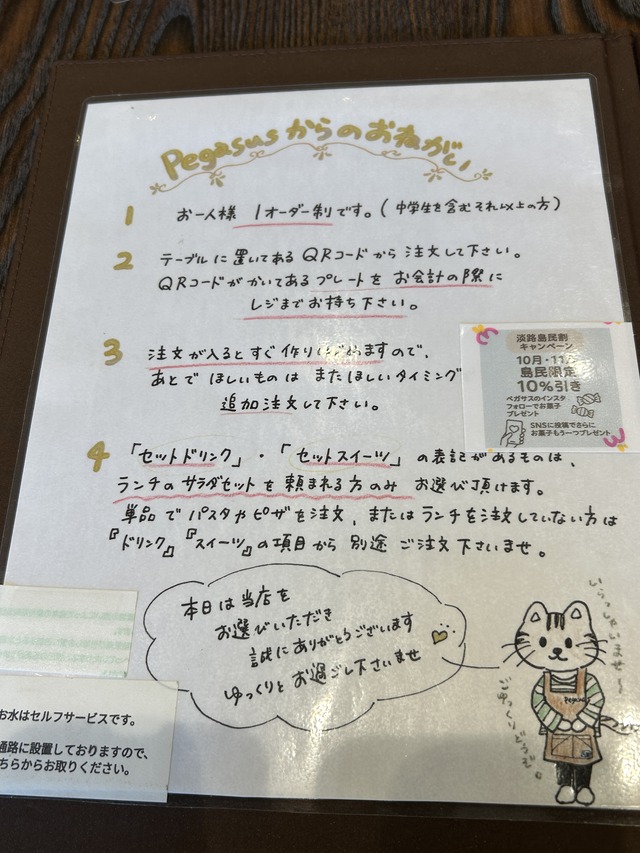 Pegasusからのおねがい
1 お一人様 1オーダー制です。(中学生を含むそれ以上の方)
2 テーブルに置いてあるQRコードから注文して下さい。
QRコードがかいてあるプレートをお会計の際に
レジまでお持ち下さい。
3 注文が入るとすぐ作りはじめますので、
あとでほしいものはまたほしいタイミング
追加注文して下さい。
淡路島民割
キャンペーン
10月・11月
島民限定
10%引き
ペガサスのインスタ
フォローでお菓子
プレゼント
SNSに投稿でさらに
お菓子もう一つプレゼント
4 「セットドリンク」・「セットスイーツ」の表記があるものは、
ランチのサラダセットを頼まれる方のみ お選び頂けます。
単品でパスタやピザを注文、またはランチを注文していない方は
『ドリンク』『スイーツ』の項目から別途ご注文下さいませ。
本日は当店を
お選びいただき
誠にありがとうございます
ゆっくりとお過ごし下さいませ
いらっしゃいませ～
ごゆっくりどうぞ。
Pegasus
お水はセルフサービスです。
通路に設置しておりますので、
ちらからお取りください。